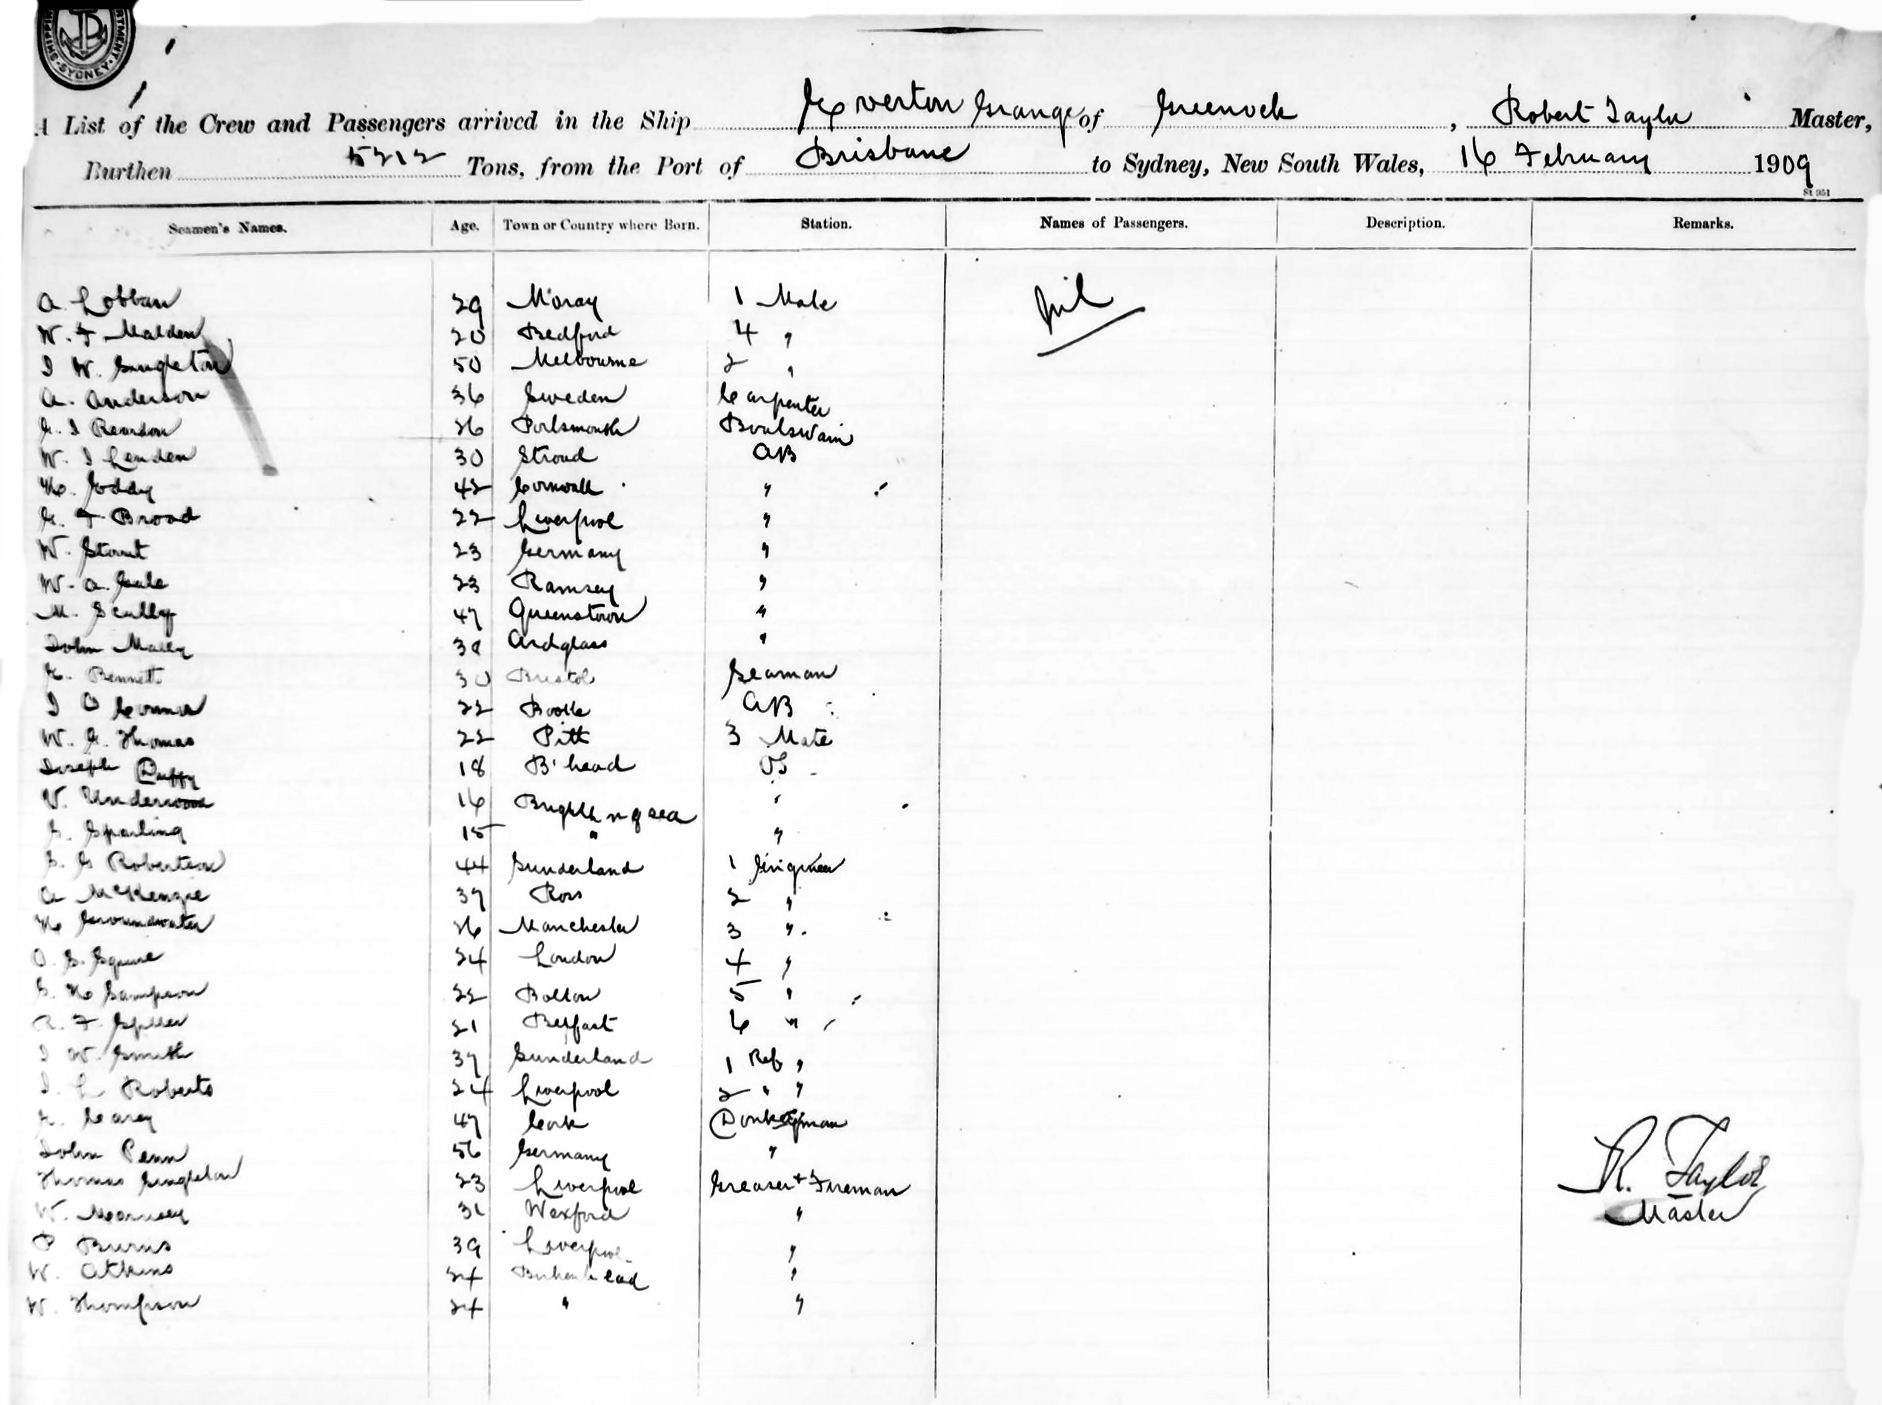 SHIPPING DEPARTMENT · SYDNEY ·
A List of the Crew and Passengers arrived in the Ship Everton Grange of Greenock, Robert Taylor Master,
Burthen 5212 Tons, from the Port of Brisbane to Sydney, New South Wales, 16 February 1909
St 951
Seamen's Names. Age. Town or Country where Born. Station. Names of Passengers. Description. Remarks.
A. Lobban 29 Moray 1 Mate nil
W. F Malden 20 Bedford 4 "
J W. Singleton 50 Melbourne 2 "
A. Anderson 36 Sweden Carpenter
G. J Reardon 26 Portsmouth Boatswain
W. J Lenden 30 Stroud AB
H. Joddy 42 Cornwall "
G. F Broad 22 Liverpool "
W. Stout 23 Germany "
W. A. Gale 23 Ramsey "
M. Scully 47 Queenstown "
John Mally 38 Ardglass "
Bennett 30 Bristol Seaman
J O Connor 22 Bootle AB
W. G. Thomas 22 Pitt 3 Mate
Joseph Duffy 18 B'head OS
V. Underwood 16 Brightlingsea "
S. Sparling 15 " "
S. G Robertson 44 Sunderland 1 Engineer
A McKenzie 37 Ross 2 "
H Groundwater 26 Manchester 3 "
O. S. Squire 24 London 4 "
S. H Sampson 22 Bolton 5 "
R. F. Spiller 21 Belfast 6 "
J W. Smith 37 Sunderland 1 Ref "
J. L Roberts 24 Liverpool 2 " "
Carey 47 Cork Donkeyman
John Penn 56 Germany "
Thomas Singleton 23 Liverpool Greaser + Fireman
W. Kearney 31 Wexford "
P Burns 39 Liverpool "
W. Atkins 24 Birkenhead "
W. Thompson 24 " "
R. Taylor
Master